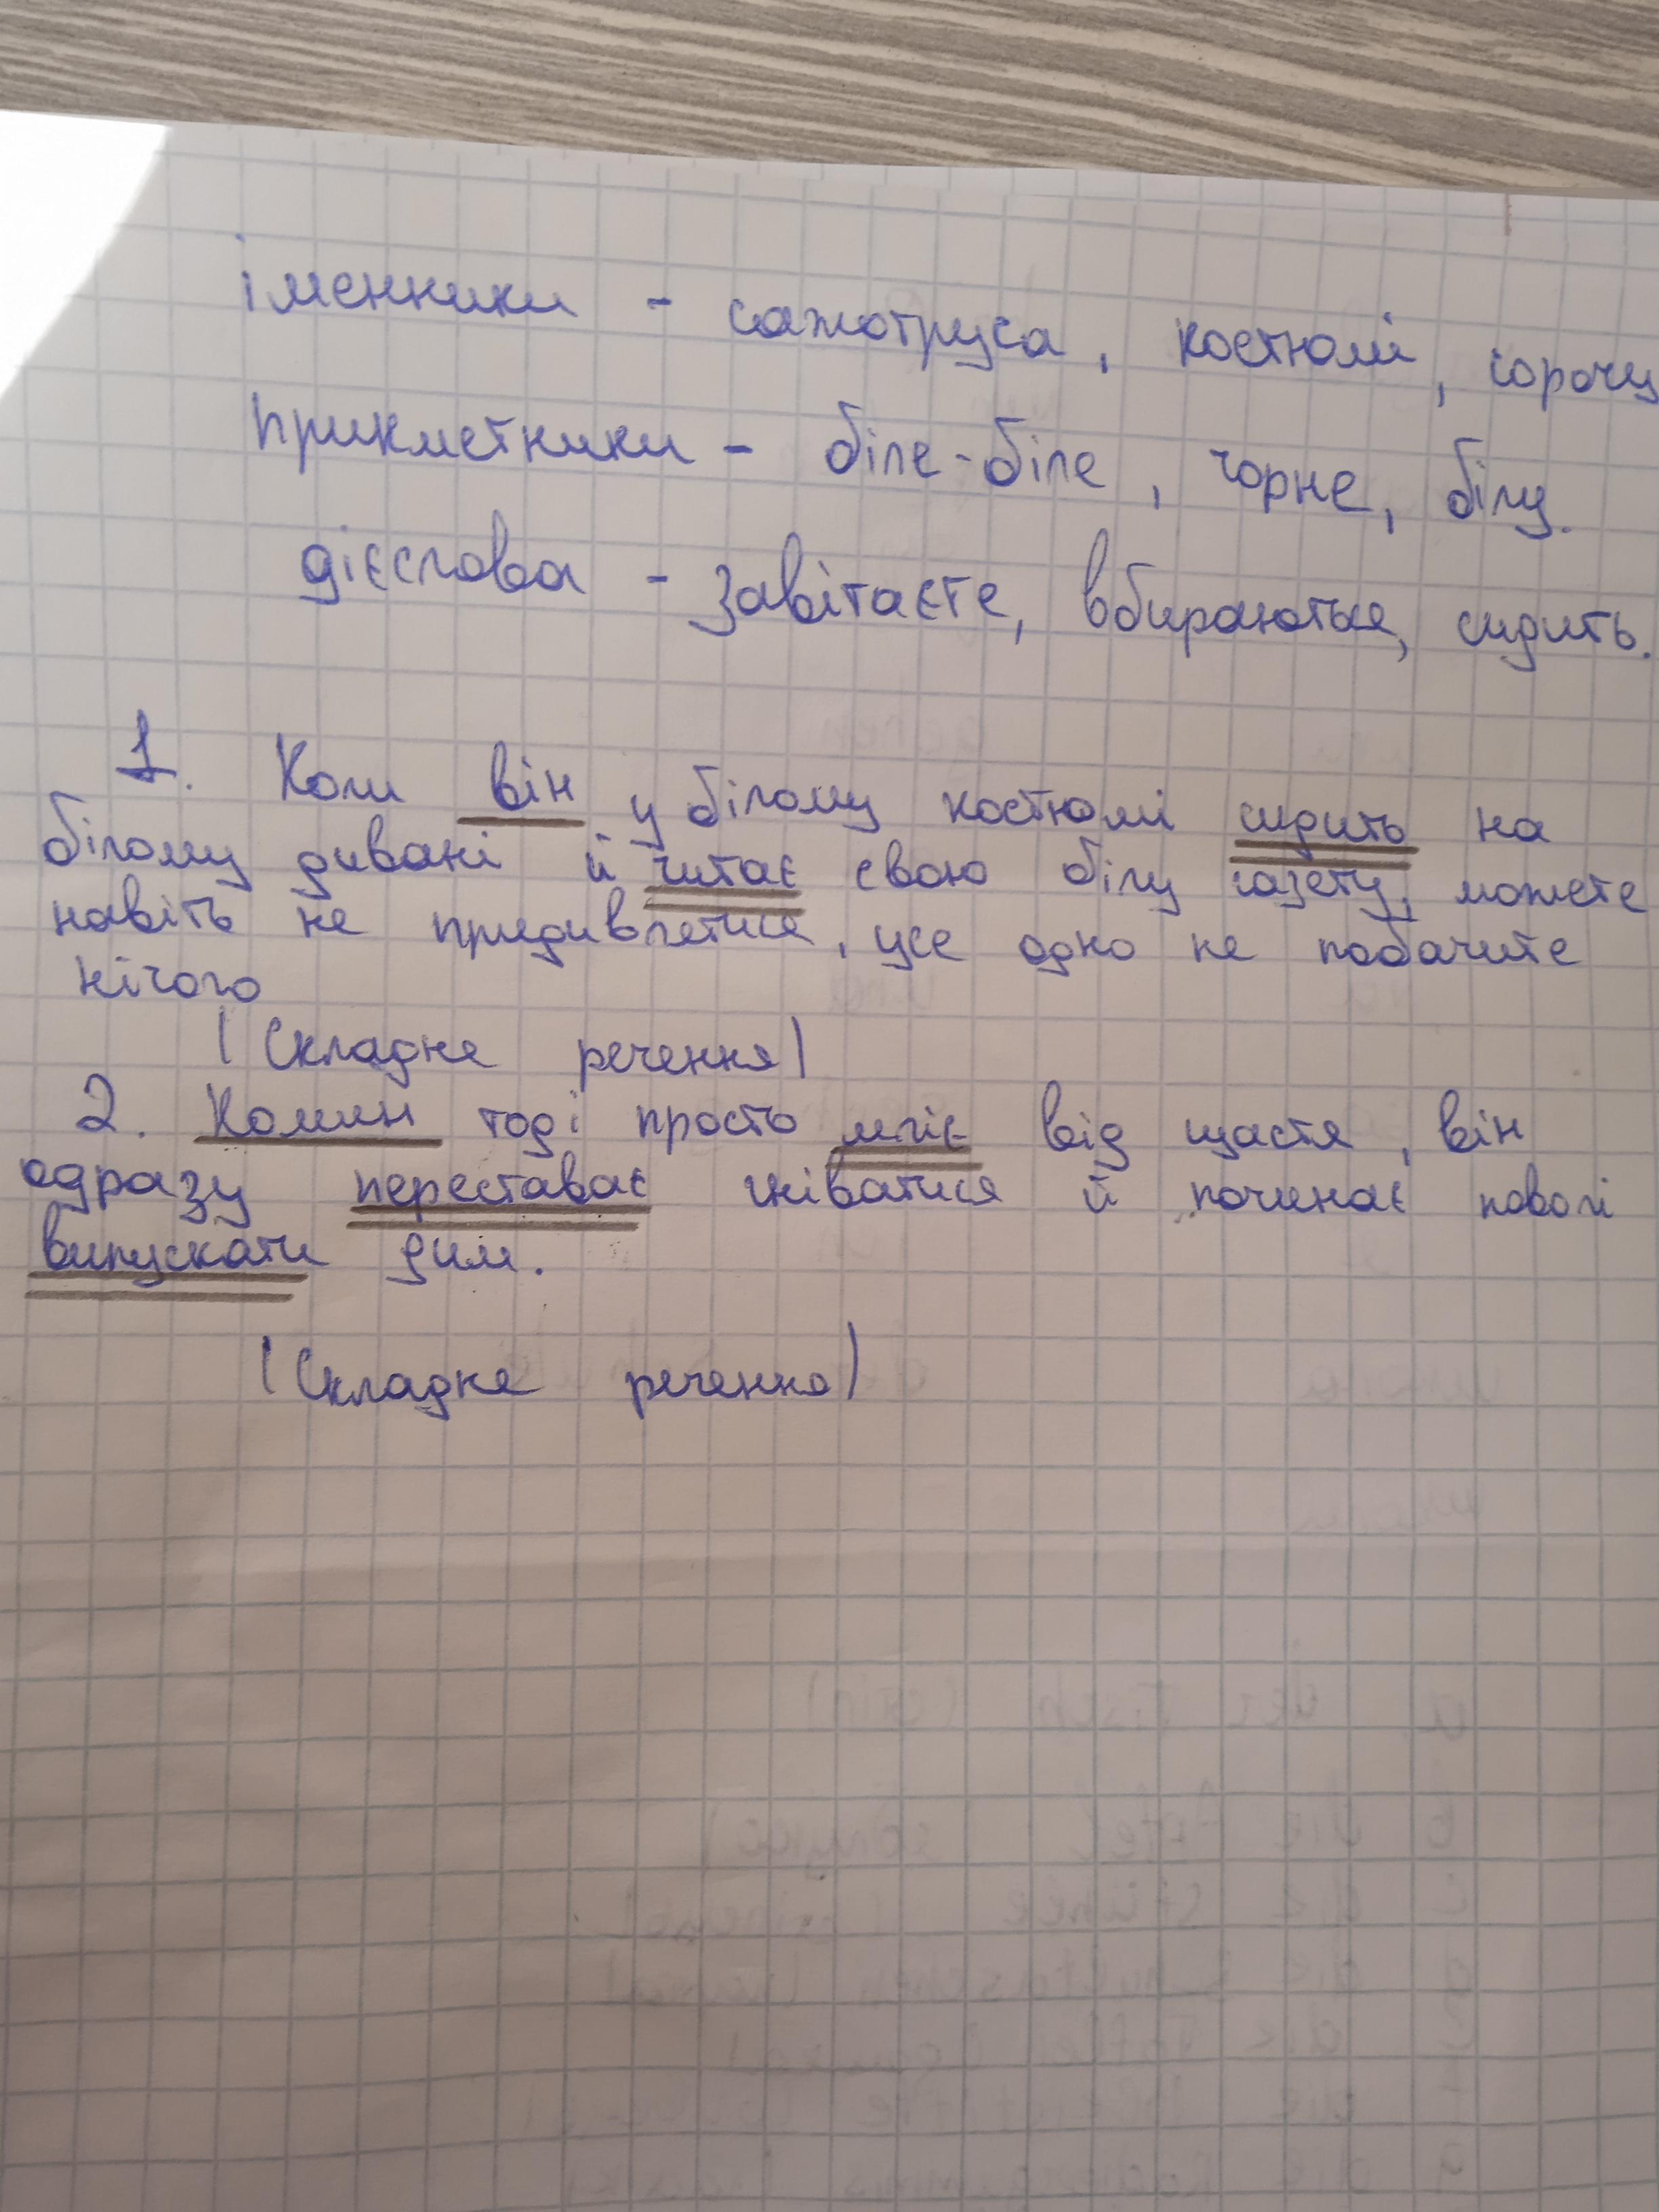 іменники - сажотруса, костюмі, сорочц
прикметники - біле-біле, чорне, білу.
дієслова - завітаєте, вбираються, сидить.
1. Коли він у білому костюмі сидить на
білому дивані й читає свою білу газету, можете
навіть не придивлятися, усе одно не побачите
нічого
(Складне речення)
2. Комин тоді просто мліє від щастя, він
одразу переставає гніватися й починає поволі
випускати дим.
(Складне речення)